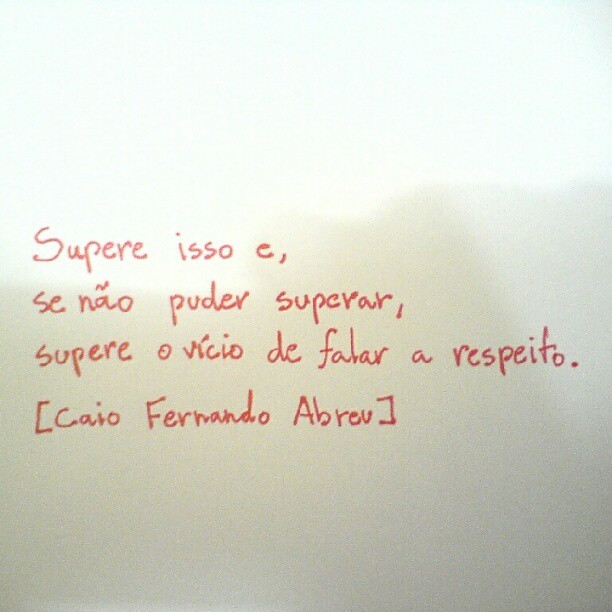 Supere isso e,
se não puder superar,
supere o vício de falar a respeito.
[Caio Fernando Abreu]